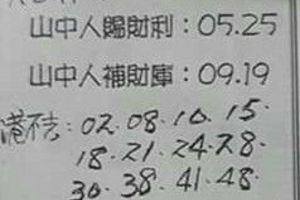 山中人賜財利：05.25
山中人補財庫：09.19
港吉：02.08.10.15.
18.21.24.28.
30.38.41.48.